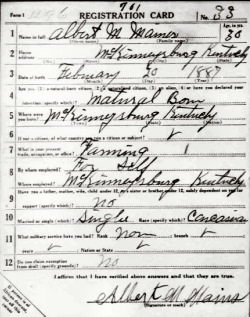 Form 1 761 No. 33
REGISTRATION CARD
1 Name in full Albert M. Mains Age, in yrs. 30
(Given name) (Family name)
2 Home address McKinneysburg Kentucky
3 Date of birth February 20 1887
(Month) (Day) (Year)
4 Are you (1) a natural-born citizen, (2) a naturalized citizen, (3) an alien, (4) or have you declared your
intention (specify which)? Natural Born
5 Where were you born? McKinneysburg Kentucky
6 If not a citizen, of what country are you a citizen or subject?
7 What is your present trade, occupation, or office? Farming 1
8 By whom employed?
Where employed? McKinneysburg Kentucky
9 Have you a father, mother, wife, child under 12, or a sister or brother under 12, solely dependent on you for
support (specify which)? No
10 Married or single (which)? Single Race (specify which)? Caucasian
11 What military service have you had? Rank None ; branch
years Nation or State
12 Do you claim exemption from draft (specify grounds)? No
I affirm that I have verified above answers and that they are true.
Albert M Mains
(Signature or mark)